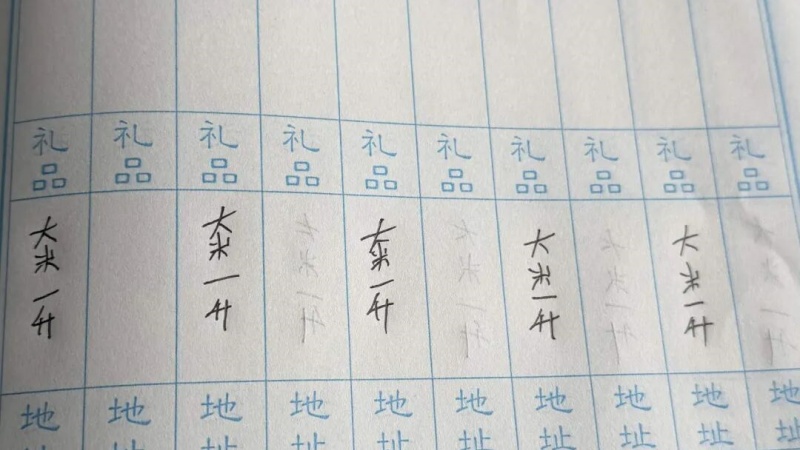 礼品
礼品
礼品
礼品
礼品
礼品
礼品
礼品
礼品
礼品
大米一升
大米一升
大米一升
大米一升
大米一升
地址
地址
地址
地址
地址
地址
地址
地址
地址
地址